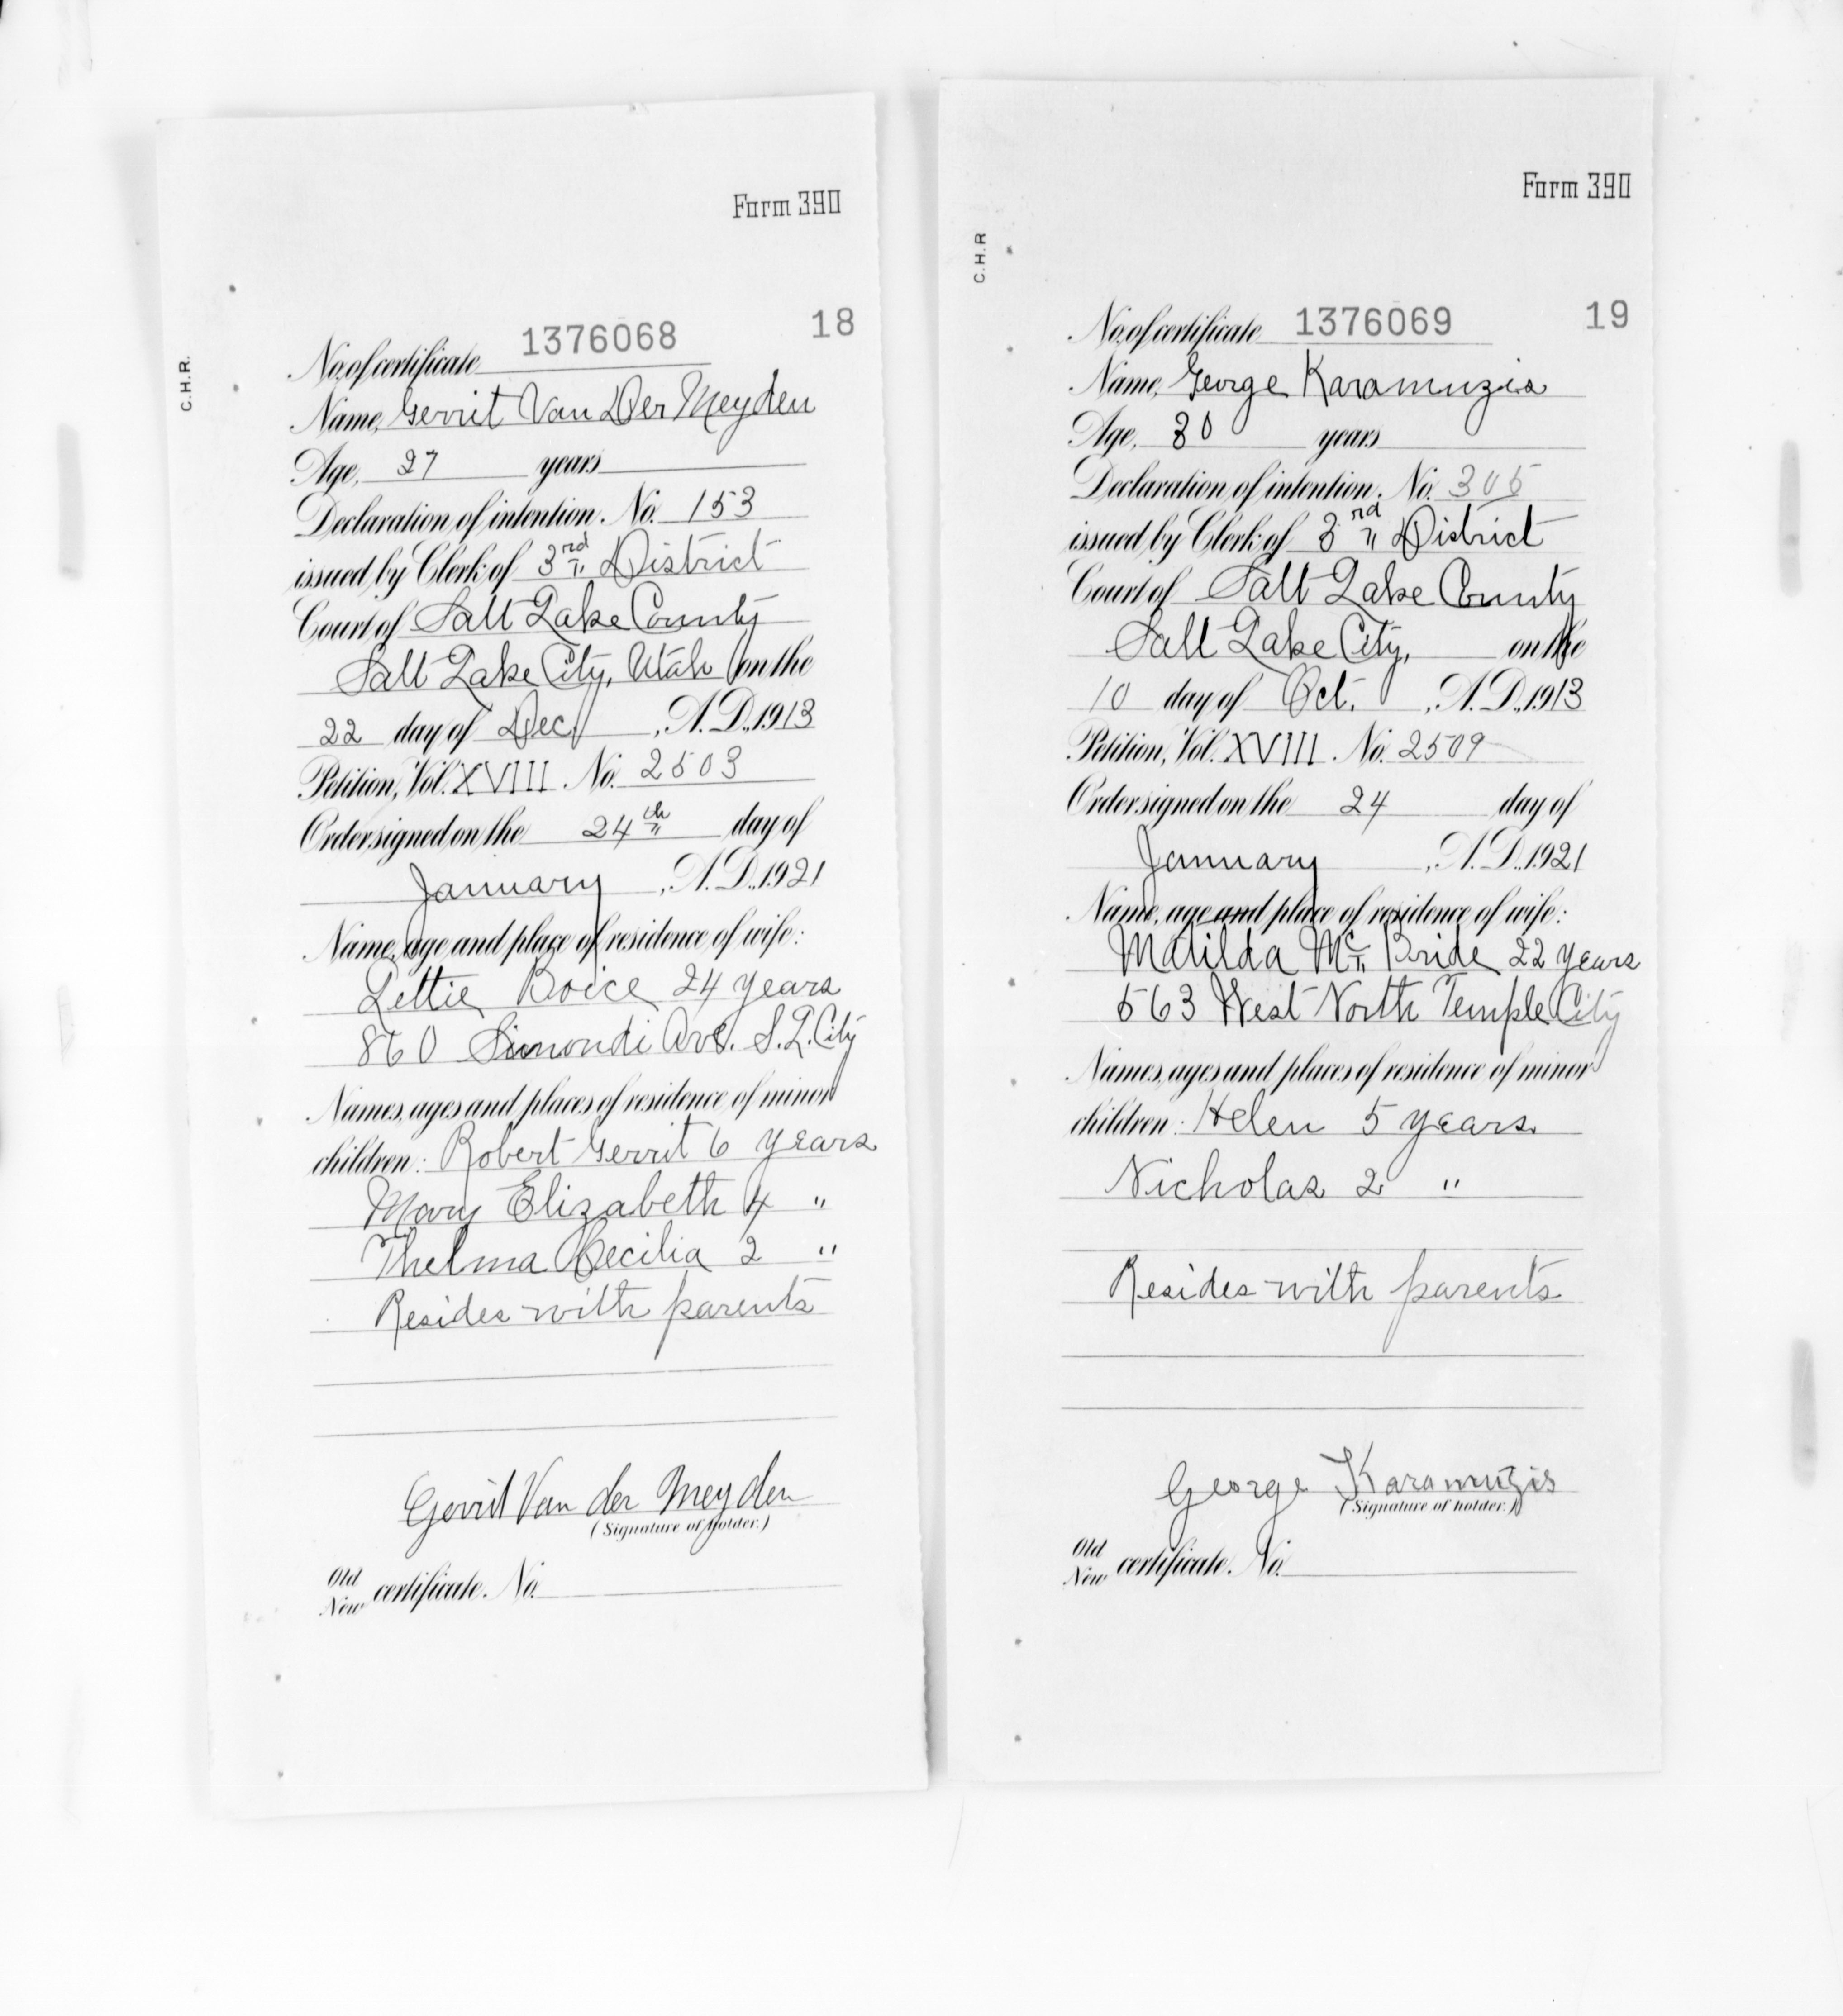 Form 390
C.H.R.
18
No. of certificate 1376068
Name, Gerrit Van Der Meyden
Age, 27 years
Declaration of intention. No. 153
issued by Clerk of 3rd District
Court of Salt Lake County
Salt Lake City, Utah on the
22 day of Dec , A.D., 1913
Petition, Vol. XVIII No. 2503
Order signed on the 24th day of
January , A.D., 1921
Name, age and place of residence of wife:
Lettie Boice 24 years
860 Simondi Ave. S.L. City
Names, ages and places of residence of minor
children: Robert Gerrit 6 years
Mary Elizabeth 4 "
Thelma Cecilia 2 "
Resides with parents
Gerrit Van der Meyden
(Signature of holder.)
Old
New certificate. No.
Form 390
C.H.R
19
No. of certificate 1376069
Name, George Karamuzis
Age, 30 years
Declaration of intention. No. 305
issued by Clerk of 3rd District
Court of Salt Lake County
Salt Lake City, on the
10 day of Oct. , A.D., 1913
Petition, Vol. XVIII No. 2509
Order signed on the 24 day of
January , A.D., 1921
Name, age and place of residence of wife:
Matilda Mc Bride 22 years
563 West North Temple City
Names, ages and places of residence of minor
children: Helen 5 years.
Nicholas 2 "
Resides with parents
George Karamuzis
(Signature of holder.)
Old
New certificate. No.